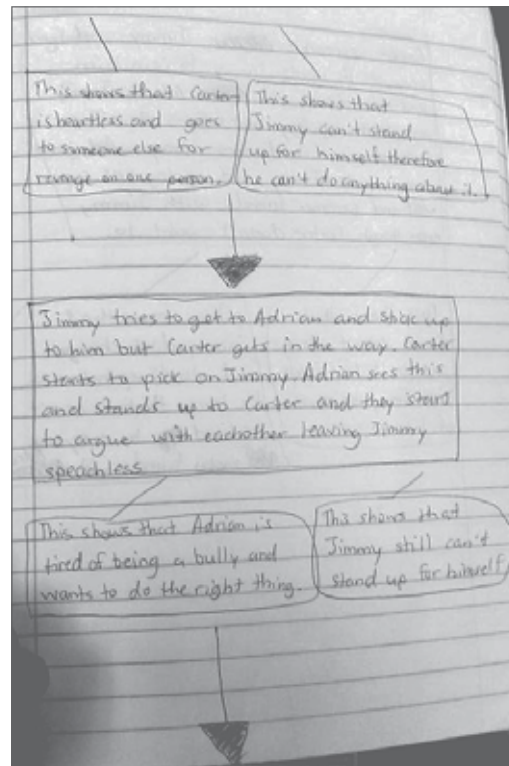 This shows that Carter
is heartless and goes
to someone else for
revenge on one person.
This shows that
Jimmy can't stand
up for himself therefore
he can't do anything about it.
Jimmy tries to get to Adrian and up
to him but Carter gets in the way. Carter
starts to pick on Jimmy. Adrian sees this
and stands up to Carter and they start
to argue with eachother leaving Jimmy
speachless
This shows that Adrian is
tired of being a bully and
wants to do the right thing.
This shows that
Jimmy still can't
stand up for himself